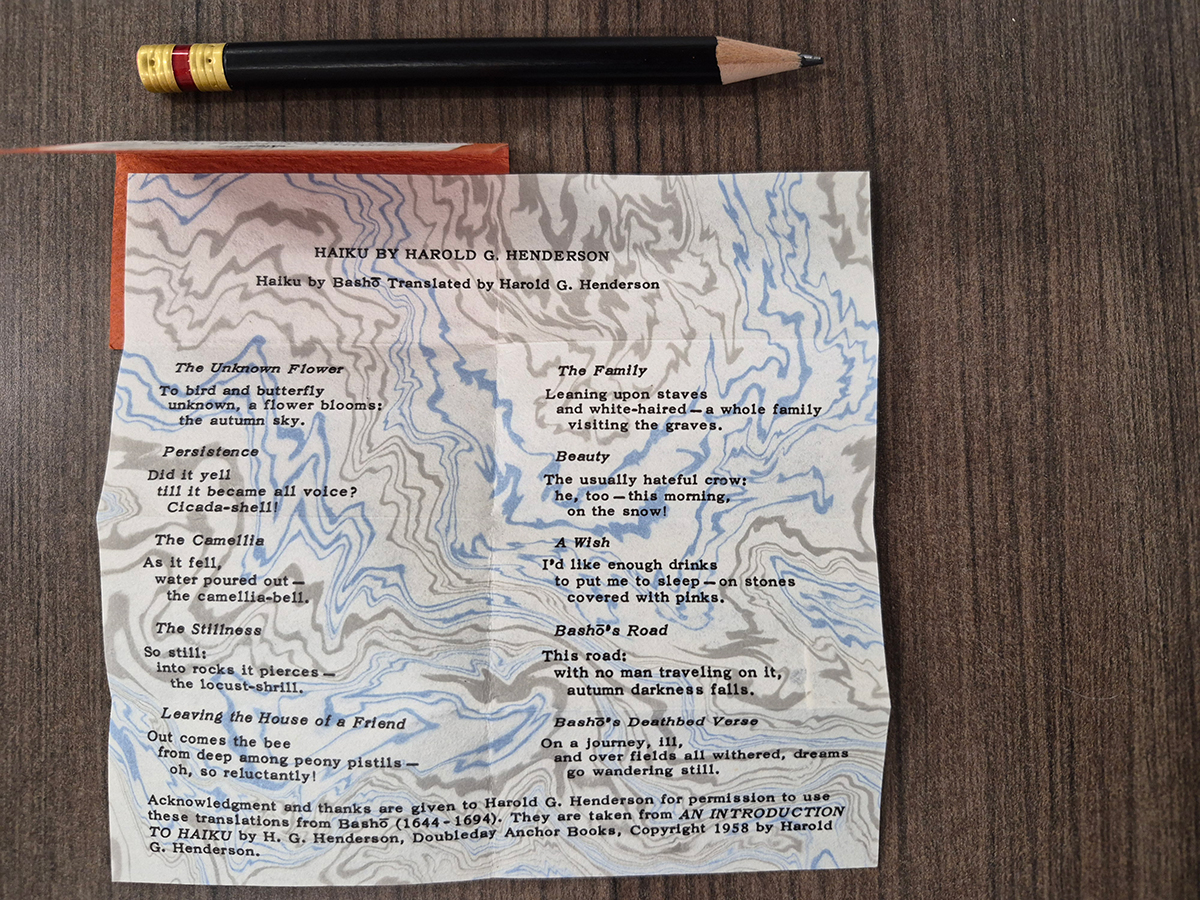 HAIKU BY HAROLD G. HENDERSON
Haiku by Bashō Translated by Harold G. Henderson
The Unknown Flower
To bird and butterfly
unknown, a flower blooms:
the autumn sky.
Persistence
Did it yell
till it became all voice?
Cicada-shell!
The Camellia
As it fell,
water poured out—
the camellia-bell.
The Stillness
So still:
into rocks it pierces—
the locust-shrill.
Leaving the House of a Friend
Out comes the bee
from deep among peony pistils—
oh, so reluctantly!
The Family
Leaning upon staves
and white-haired—a whole family
visiting the graves.
Beauty
The usually hateful crow:
he, too—this morning,
on the snow!
A Wish
I'd like enough drinks
to put me to sleep—on stones
covered with pinks.
Bashō's Road
This road:
with no man traveling on it,
autumn darkness falls.
Bashō's Deathbed Verse
On a journey, ill,
and over fields all withered, dreams
go wandering still.
Acknowledgment and thanks are given to Harold G. Henderson for permission to use
these translations from Bashō (1644-1694). They are taken from AN INTRODUCTION
TO HAIKU by H. G. Henderson, Doubleday Anchor Books, Copyright 1958 by Harold
G. Henderson.